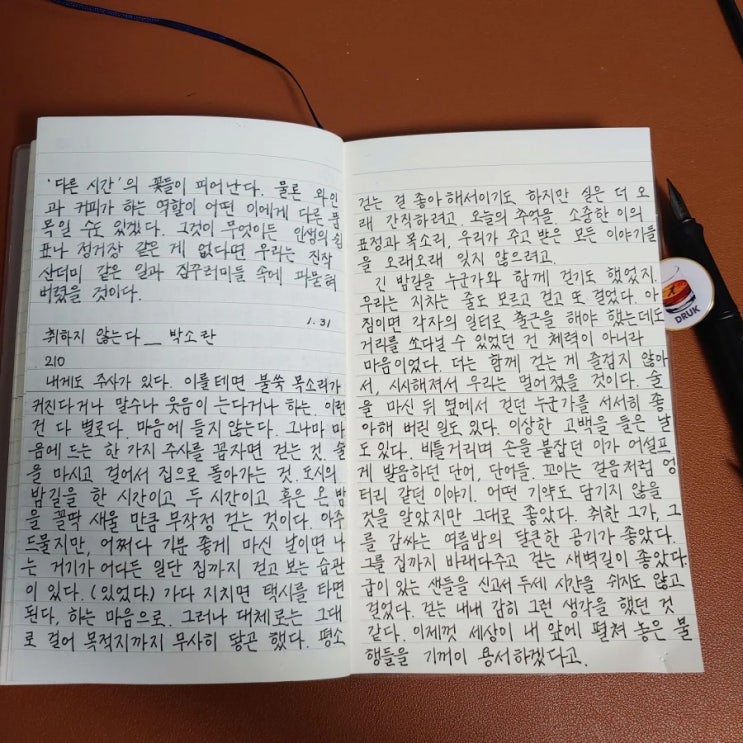 '다른 시간'의 꽃들이 피어난다. 물론 와인
과 커피가 하는 역할이 어떤 이에게 다른 품
목일 수도 있겠다. 그것이 무엇이든 인생의 쉼
표나 정거장 같은 게 없다면 우리는 진작
산더미 같은 일과 집꾸러미들 속에 파묻혀
버렸을 것이다.
1.31
취하지 않는다__ 박소란
210
내게도 주사가 있다. 이를테면 불쑥 목소리가
커진다거나 말수나 웃음이 는다거나 하는. 이런
건 다 별로다. 마음에 들지 않는다. 그나마 마
음에 드는 한 가지 주사를 꼽자면 걷는 것. 술
을 마시고 걸어서 집으로 돌아가는 것. 도시의
밤길을 한 시간이고, 두 시간이고 혹은 온 밤
을 꼴딱 새울 만큼 무작정 걷는 것이다. 아주
드물지만, 어쩌다 기분 좋게 마신 날이면 나
는 거기가 어디든 일단 집까지 걷고 보는 습관
이 있다. (있었다) 가다 지치면 택시를 타면
된다, 하는 마음으로. 그러나 대체로는 그대
로 걸어 목적지까지 무사히 닿곤 했다. 평소
걷는 걸 좋아해서이기도 하지만 실은 더 오
래 간직하려고. 오늘의 추억을 소중한 이의
표정과 목소리, 우리가 주고 받은 모든 이야기들
을 오래오래 잊지 않으려고.
긴 밤길을 누군가와 함께 걷기도 했었지.
우리는 지치는 줄도 모르고 걷고 또 걸었다. 아
침이면 각자의 일터로 출근을 해야 했는데도
거리를 쏘다닐 수 있었던 건 체력이 아니라
마음이었다. 더는 함께 걷는 게 즐겁지 않아
서, 시시해져서 우리는 멀어졌을 것이다. 술
을 마신 뒤 옆에서 걷던 누군가를 서서히 좋
아해 버린 일도 있다. 이상한 고백을 들은 날
도 있다. 비틀거리며 손을 붙잡던 이가 어설프
게 발음하던 단어, 단어들. 꼬이는 걸음처럼 엉
터리 같던 이야기. 어떤 기약도 담기지 않을
것을 알았지만 그대로 좋았다. 취한 그가, 그
를 감싸는 여름밤의 달큰한 공기가 좋았다.
그를 집까지 바래다주고 걷는 새벽길이 좋았다.
굽이 있는 샌들을 신고서 두세 시간을 쉬지도 않고
걸었다. 걷는 내내 감히 그런 생각을 했던 것
같다. 이제껏 세상이 내 앞에 펼쳐 놓은 불
행들을 기꺼이 용서하겠다고.
DRUK